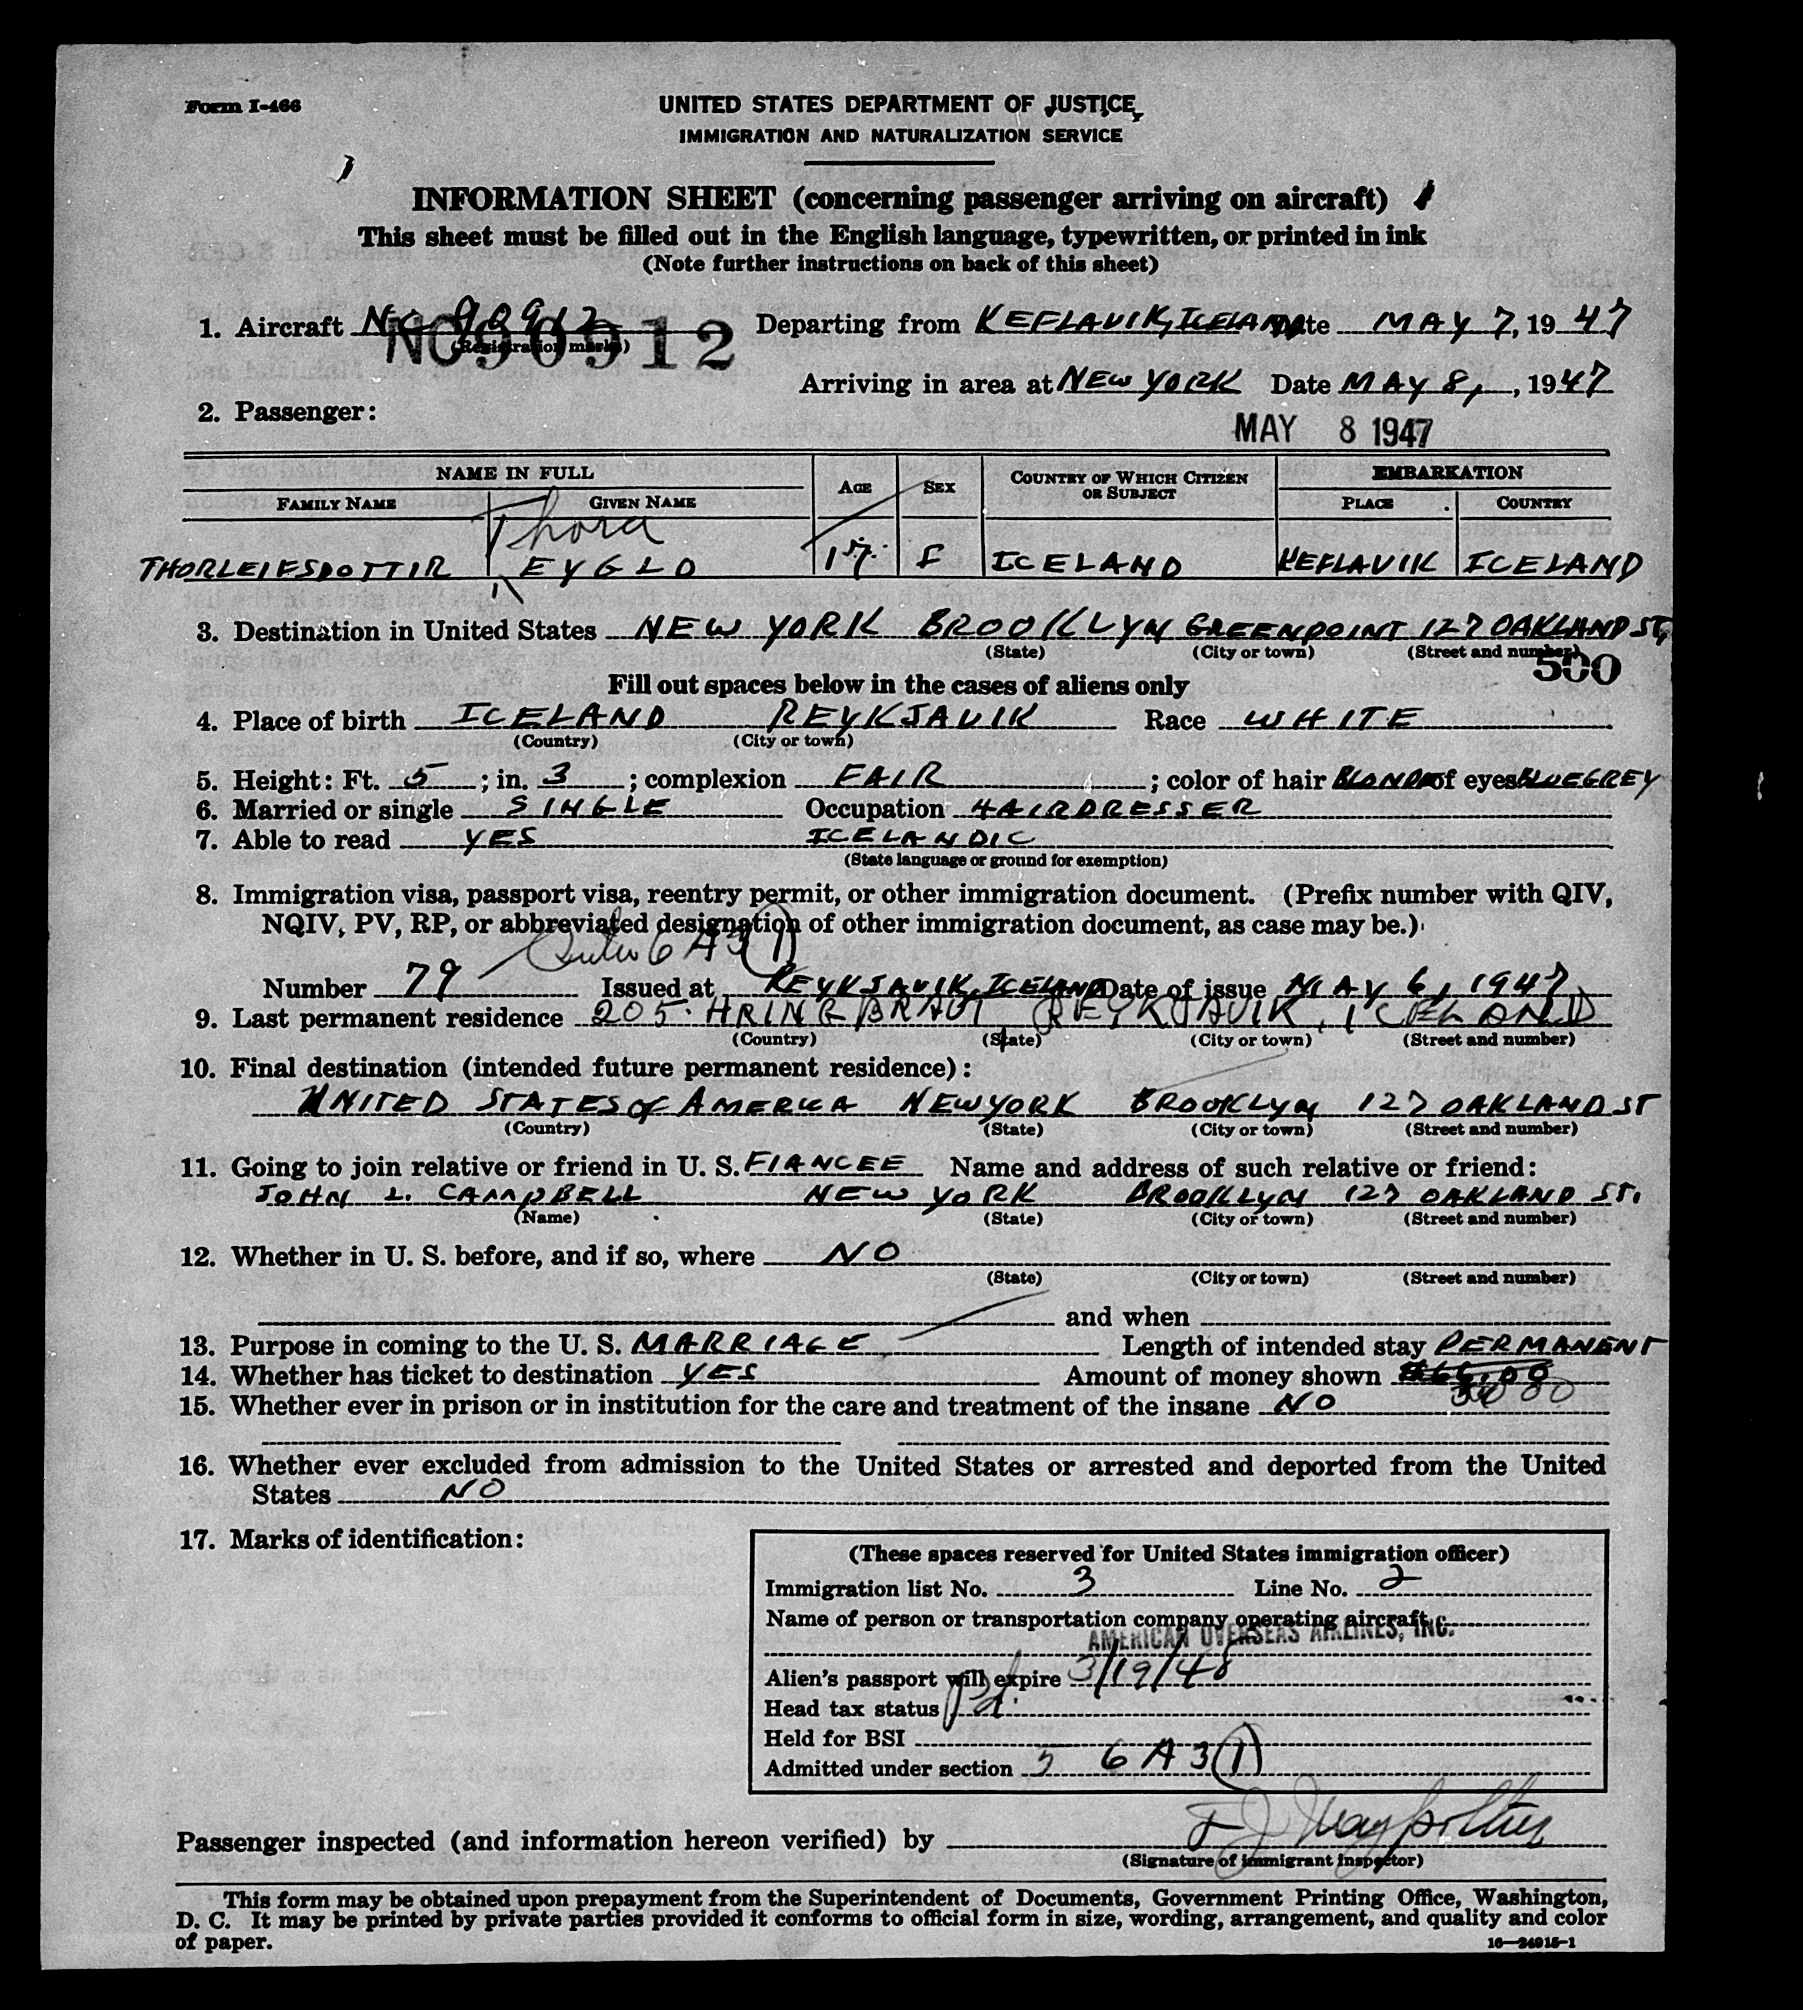 Form I-466
UNITED STATES DEPARTMENT OF JUSTICE
IMMIGRATION AND NATURALIZATION SERVICE
INFORMATION SHEET (concerning passenger arriving on aircraft)
This sheet must be filled out in the English language, typewritten, or printed in ink
(Note further instructions on back of this sheet)
1. Aircraft NC 90912 Departing from KEFLAVIK, ICELAND Date MAY 7, 1947
(Registration marks)
NC90912
Arriving in area at NEW YORK Date MAY 8, , 1947
2. Passenger:
MAY 8 1947
NAME IN FULL AGE SEX COUNTRY OF WHICH CITIZEN OR SUBJECT EMBARKATION
FAMILY NAME GIVEN NAME PLACE COUNTRY
Thora
THORLEIFSDOTTIR EYGLO 17 F ICELAND KEFLAVIK ICELAND
3. Destination in United States NEW YORK BROOKLYN GREENPOINT 127 OAKLAND ST,
(State) (City or town) (Street and number)
500
Fill out spaces below in the cases of aliens only
4. Place of birth ICELAND REYKJAVIK Race WHITE
(Country) (City or town)
5. Height: Ft. 5 ; in. 3 ; complexion FAIR ; color of hair BLONDE of eyes BLUEGREY
6. Married or single SINGLE Occupation HAIRDRESSER
7. Able to read YES ICELANDIC
(State language or ground for exemption)
8. Immigration visa, passport visa, reentry permit, or other immigration document. (Prefix number with QIV,
NQIV, PV, RP, or abbreviated designation of other immigration document, as case may be.)
6 A 3 (1)
Number 79 Issued at REYKJAVIK, ICELAND Date of issue MAY 6, 1947
9. Last permanent residence 205 HRINGBRAUT REYKJAVIK, ICELAND
(Country) (State) (City or town) (Street and number)
10. Final destination (intended future permanent residence):
UNITED STATES OF AMERICA NEW YORK BROOKLYN 127 OAKLAND ST
(Country) (State) (City or town) (Street and number)
11. Going to join relative or friend in U. S. FIANCEE Name and address of such relative or friend:
JOHN L. CAMPBELL NEW YORK BROOKLYN 127 OAKLAND ST.
(Name) (State) (City or town) (Street and number)
12. Whether in U. S. before, and if so, where NO
(State) (City or town) (Street and number)
and when
13. Purpose in coming to the U. S. MARRIAGE Length of intended stay PERMANENT
14. Whether has ticket to destination YES Amount of money shown
15. Whether ever in prison or in institution for the care and treatment of the insane NO
16. Whether ever excluded from admission to the United States or arrested and deported from the United
States NO
17. Marks of identification:
(These spaces reserved for United States immigration officer)
Immigration list No. 3 Line No. 2
Name of person or transportation company operating aircraft
AMERICAN OVERSEAS AIRLINES, INC.
Alien's passport will expire 3/19/48
Head tax status Pd.
Held for BSI
Admitted under section 5 6 A 3 (1)
Passenger inspected (and information hereon verified) by
(Signature of immigrant inspector)
This form may be obtained upon prepayment from the Superintendent of Documents, Government Printing Office, Washington,
D. C. It may be printed by private parties provided it conforms to official form in size, wording, arrangement, and quality and color
of paper.
16—24915-1